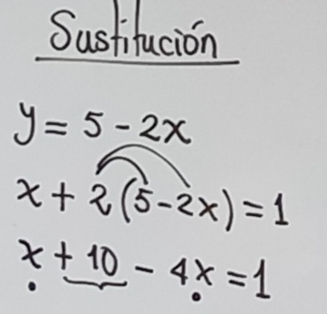 Sustitución
y = 5 - 2x
x + 2(5-2x) = 1
x + 10 - 4x = 1